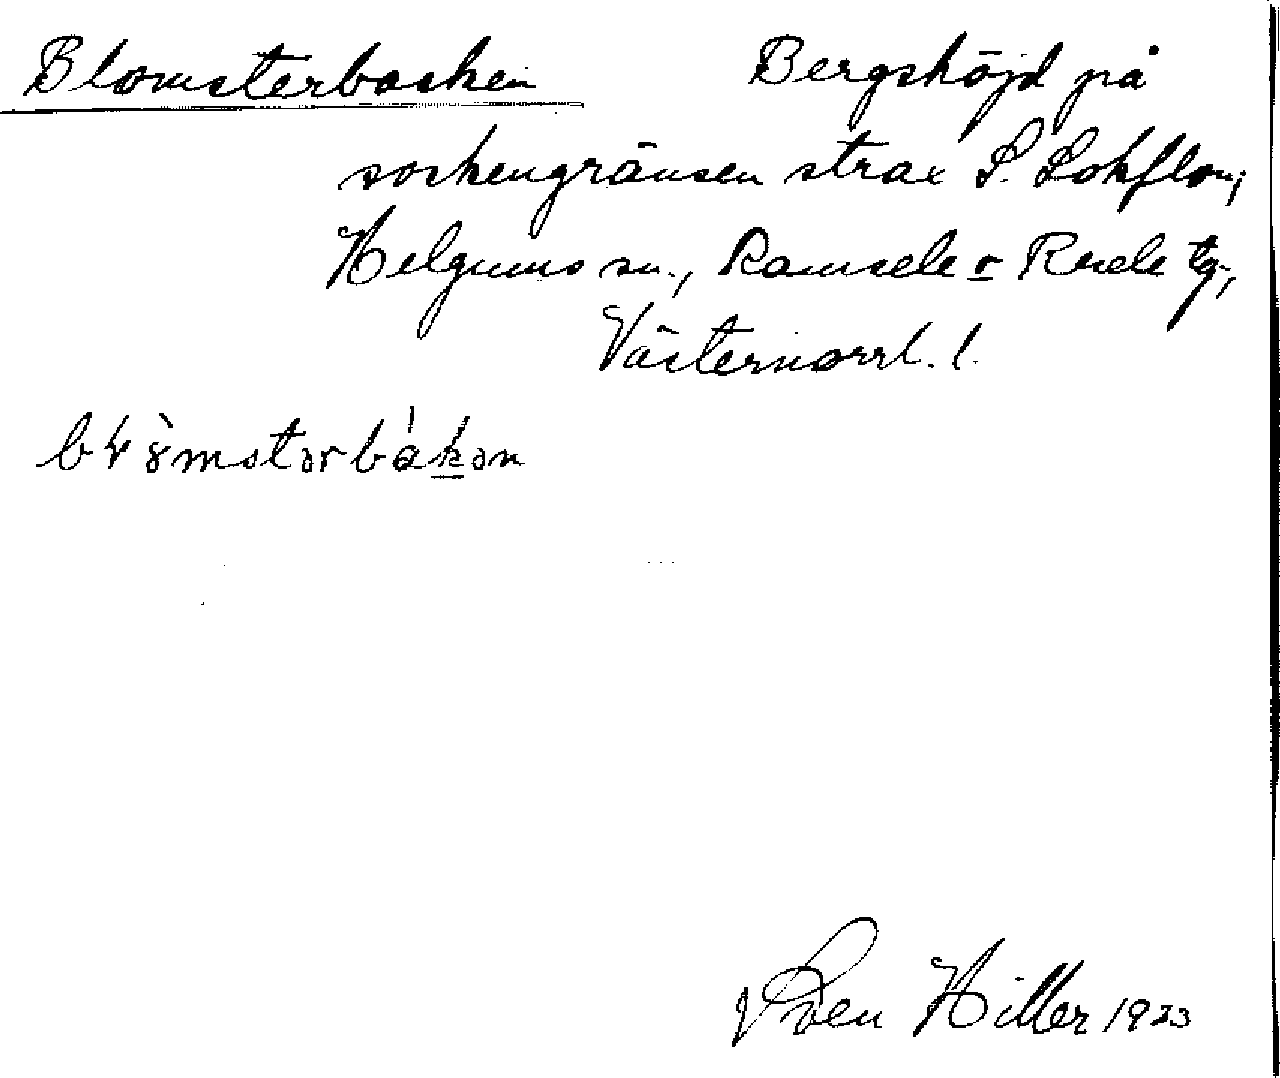 Blomsterbacken Bergshöjd på
sockengränsen strax S. Lokflon,
Helgums sn., Ramsele o Resele tg.,
Västernorrl. l.
Sven Hiller 1923